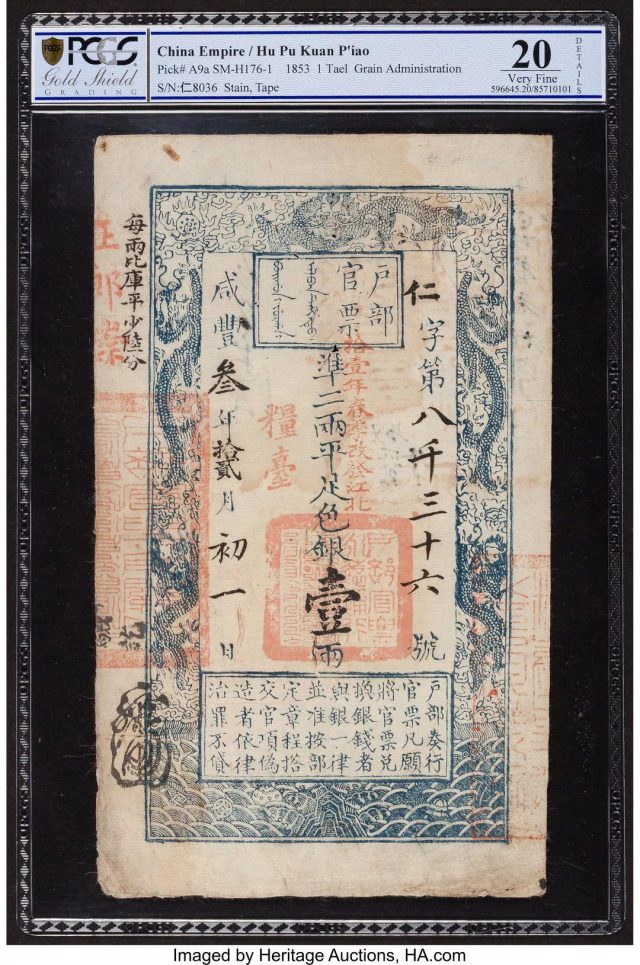 PCGS
PCGS
Gold Shield
GRADING
China Empire / Hu Pu Kuan P'iao
Pick# A9a SM-H176-1 1853 1 Tael Grain Administration
S/N:仁8036 Stain, Tape
20
Very Fine
DETAILS
596645.20/85710101
戶部
官票
仁字第八千三十六號
拾壹年春季改發江北
糧臺
準二兩平足色銀壹兩
咸豐叁年拾貳月初一日
每兩比庫平少陸分
戶部奏行
官票凡願
將官票兌
換銀錢者
與銀一律
並准按部
定章程搭
交官項偽
造者依律
治罪不貸
Imaged by Heritage Auctions, HA.com